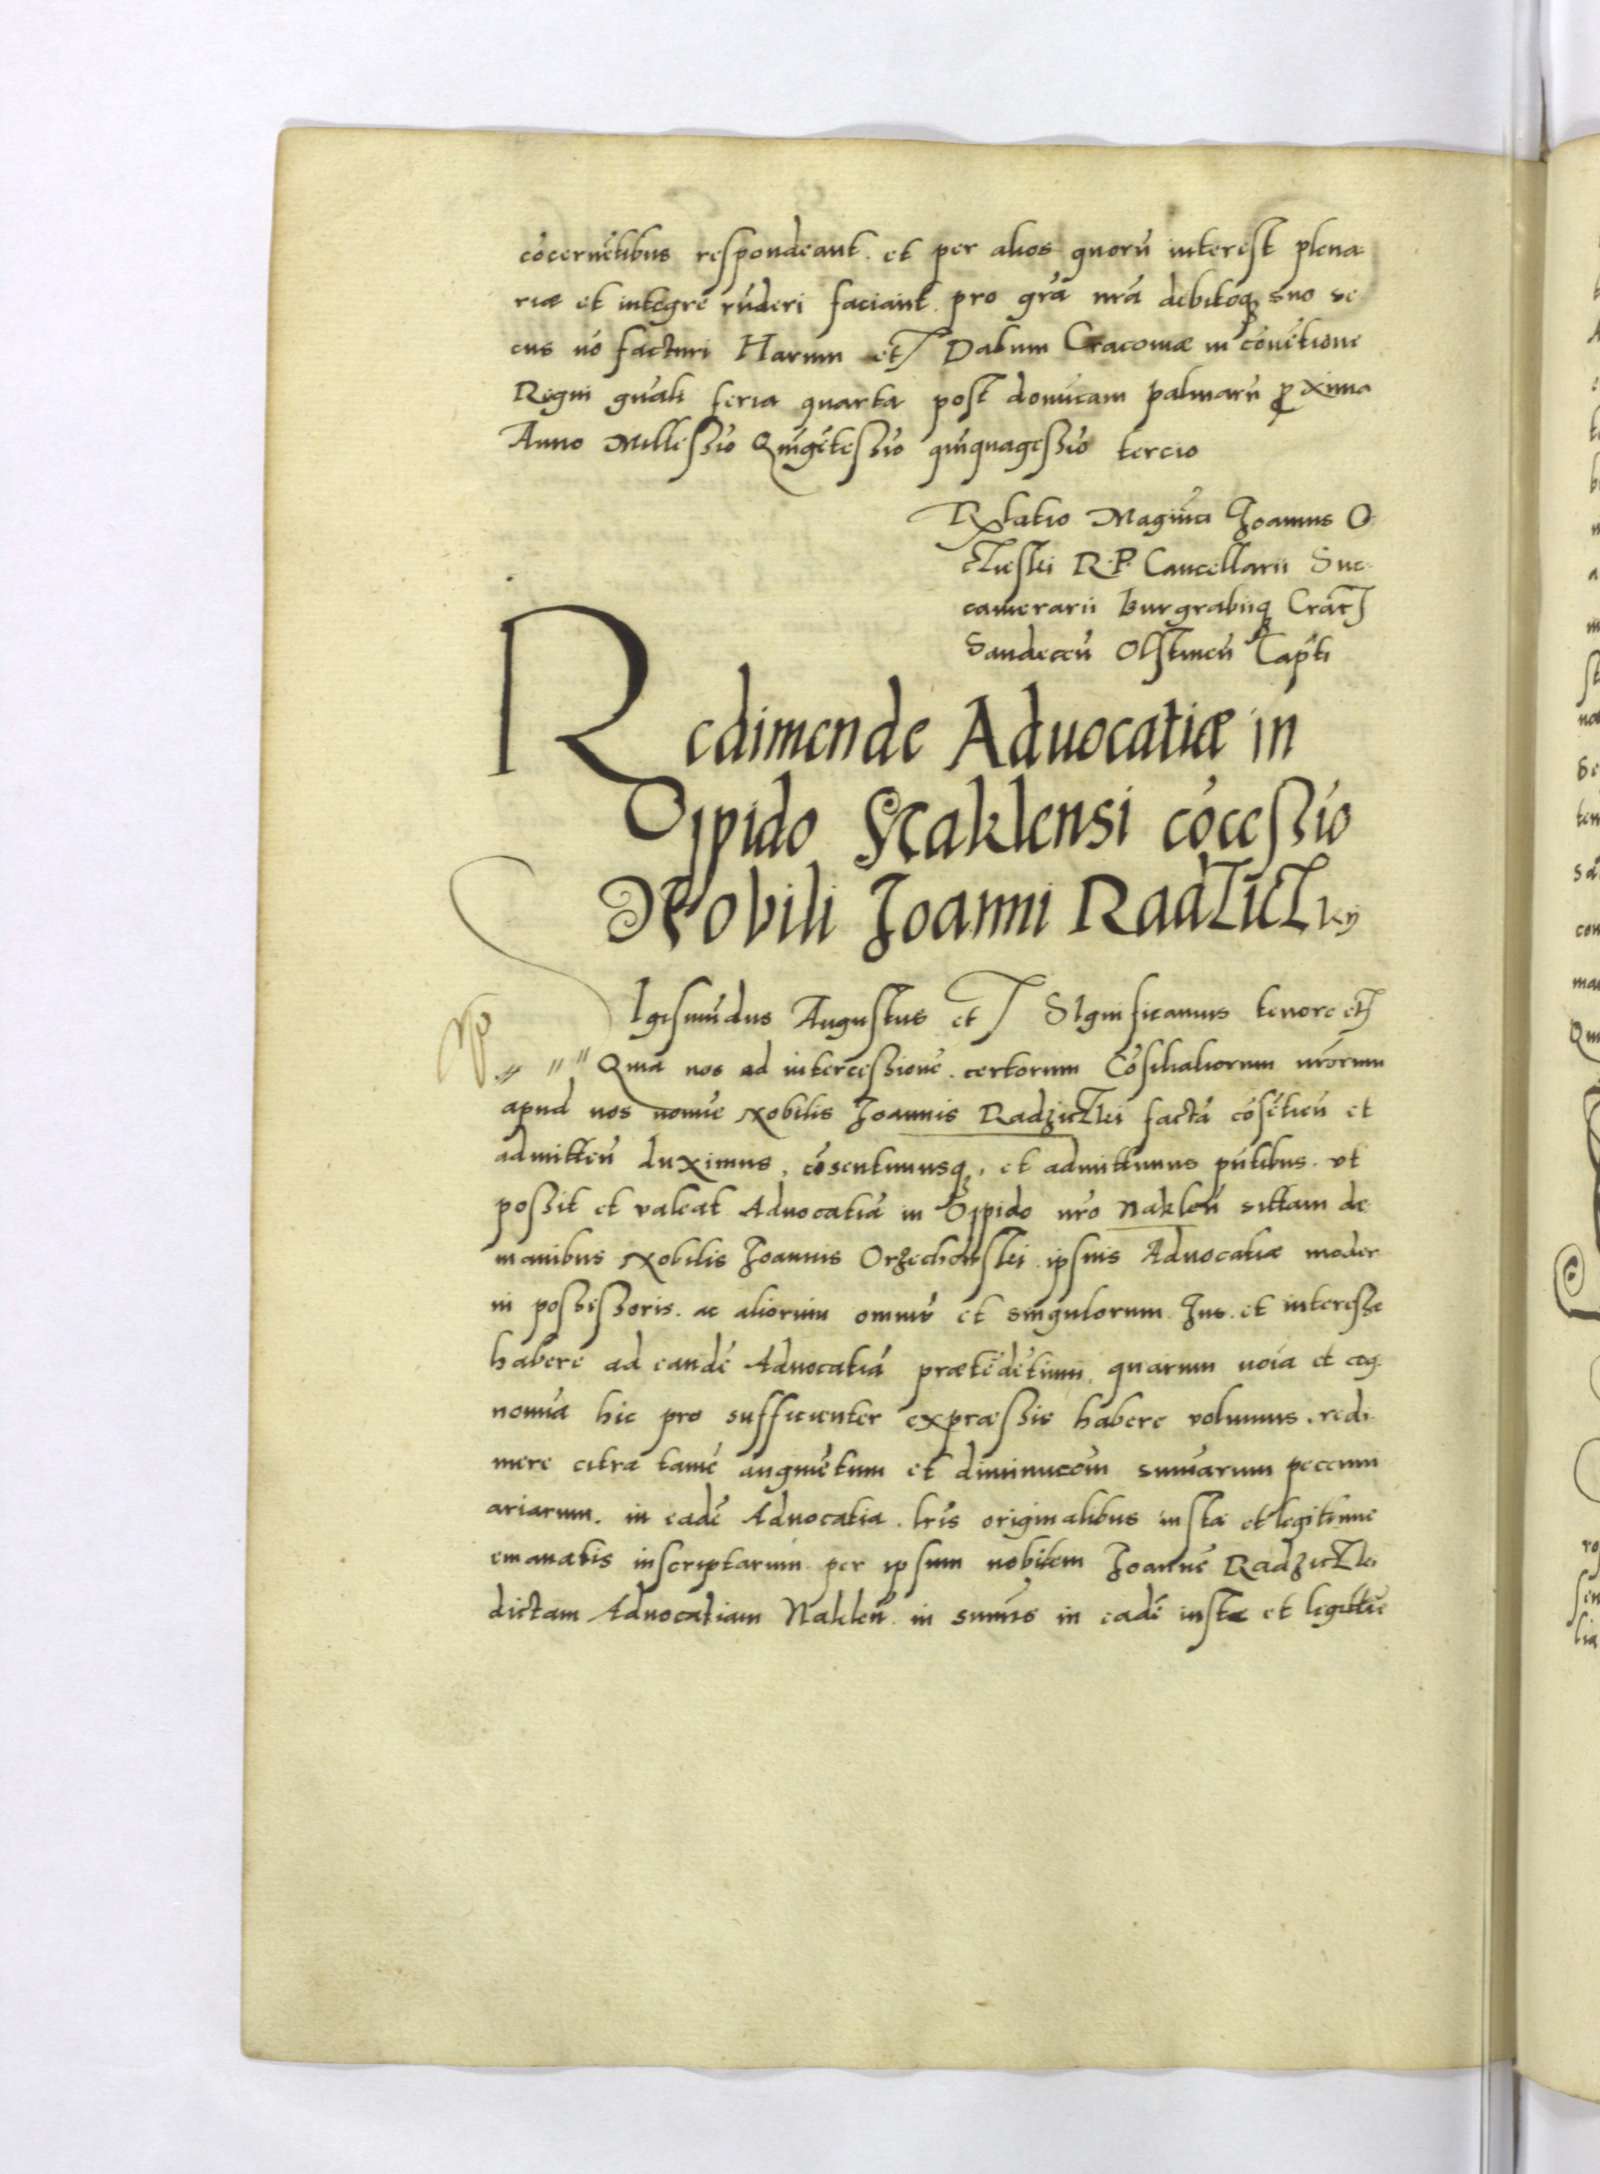 cõcernẽtibus respondeant. et per alios quorũ interest plena
riæ et integre rũderi faciant. pro grã nrã debitoq; suo se
cus nõ facturi Harum etc Datum Cracoviæ in cõvẽtione
Regni gñali feria quarta post dom̃icam palmarũ proxima
Anno Millessĩo Quĩgẽtessĩo quĩquagessĩo tercio
Relatio Magnĩci Joannis O
czieski R. P. Cancellarii Suc
camerarii burgrabiiq; Cracc
Sandeceñ Olstineñ Capĩti
Redimende Advocatiæ in
Oppido Naklensi cõcessio
Nobili Joanni Radziczkij
SIgismũdus Augustus etc SIgnificamus tenore etc
Quia nos ad intercessionẽ. certorum Cõsiliariorum nr̃orum
apud nos nomĩe Nobilis Joannis Radziczki factã cõsẽtieñ et
admitteñ duximus, cõsentimusq;, et admittimus pñtibus. ut
possit et valeat Advocatiã in Oppido nr̃o Nakleñ sittam de
manibus Nobilis Joannis Orzechowski ipsius Advocatiæ moder
ni possessoris. ac aliorum omniũ et singulorum Jus. et interesse
habere ad eandẽ Advocatiã prætẽdẽtium, quarum nõia et cog
nomĩa hic pro sufficienter expræssis habere volumus. redi
mere citra tamẽ augmẽtum et diminucõm sum̃arum peccuni
ariarum. in eadẽ Advocatia. lr̃is originalibus iustæ et legitimæ
emanatis inscriptarum per ipsum nobilem Joannẽ Radziczki
dictam Advocatiam Nakleñ. in sum̃is in eadẽ iustæ et legittĩe